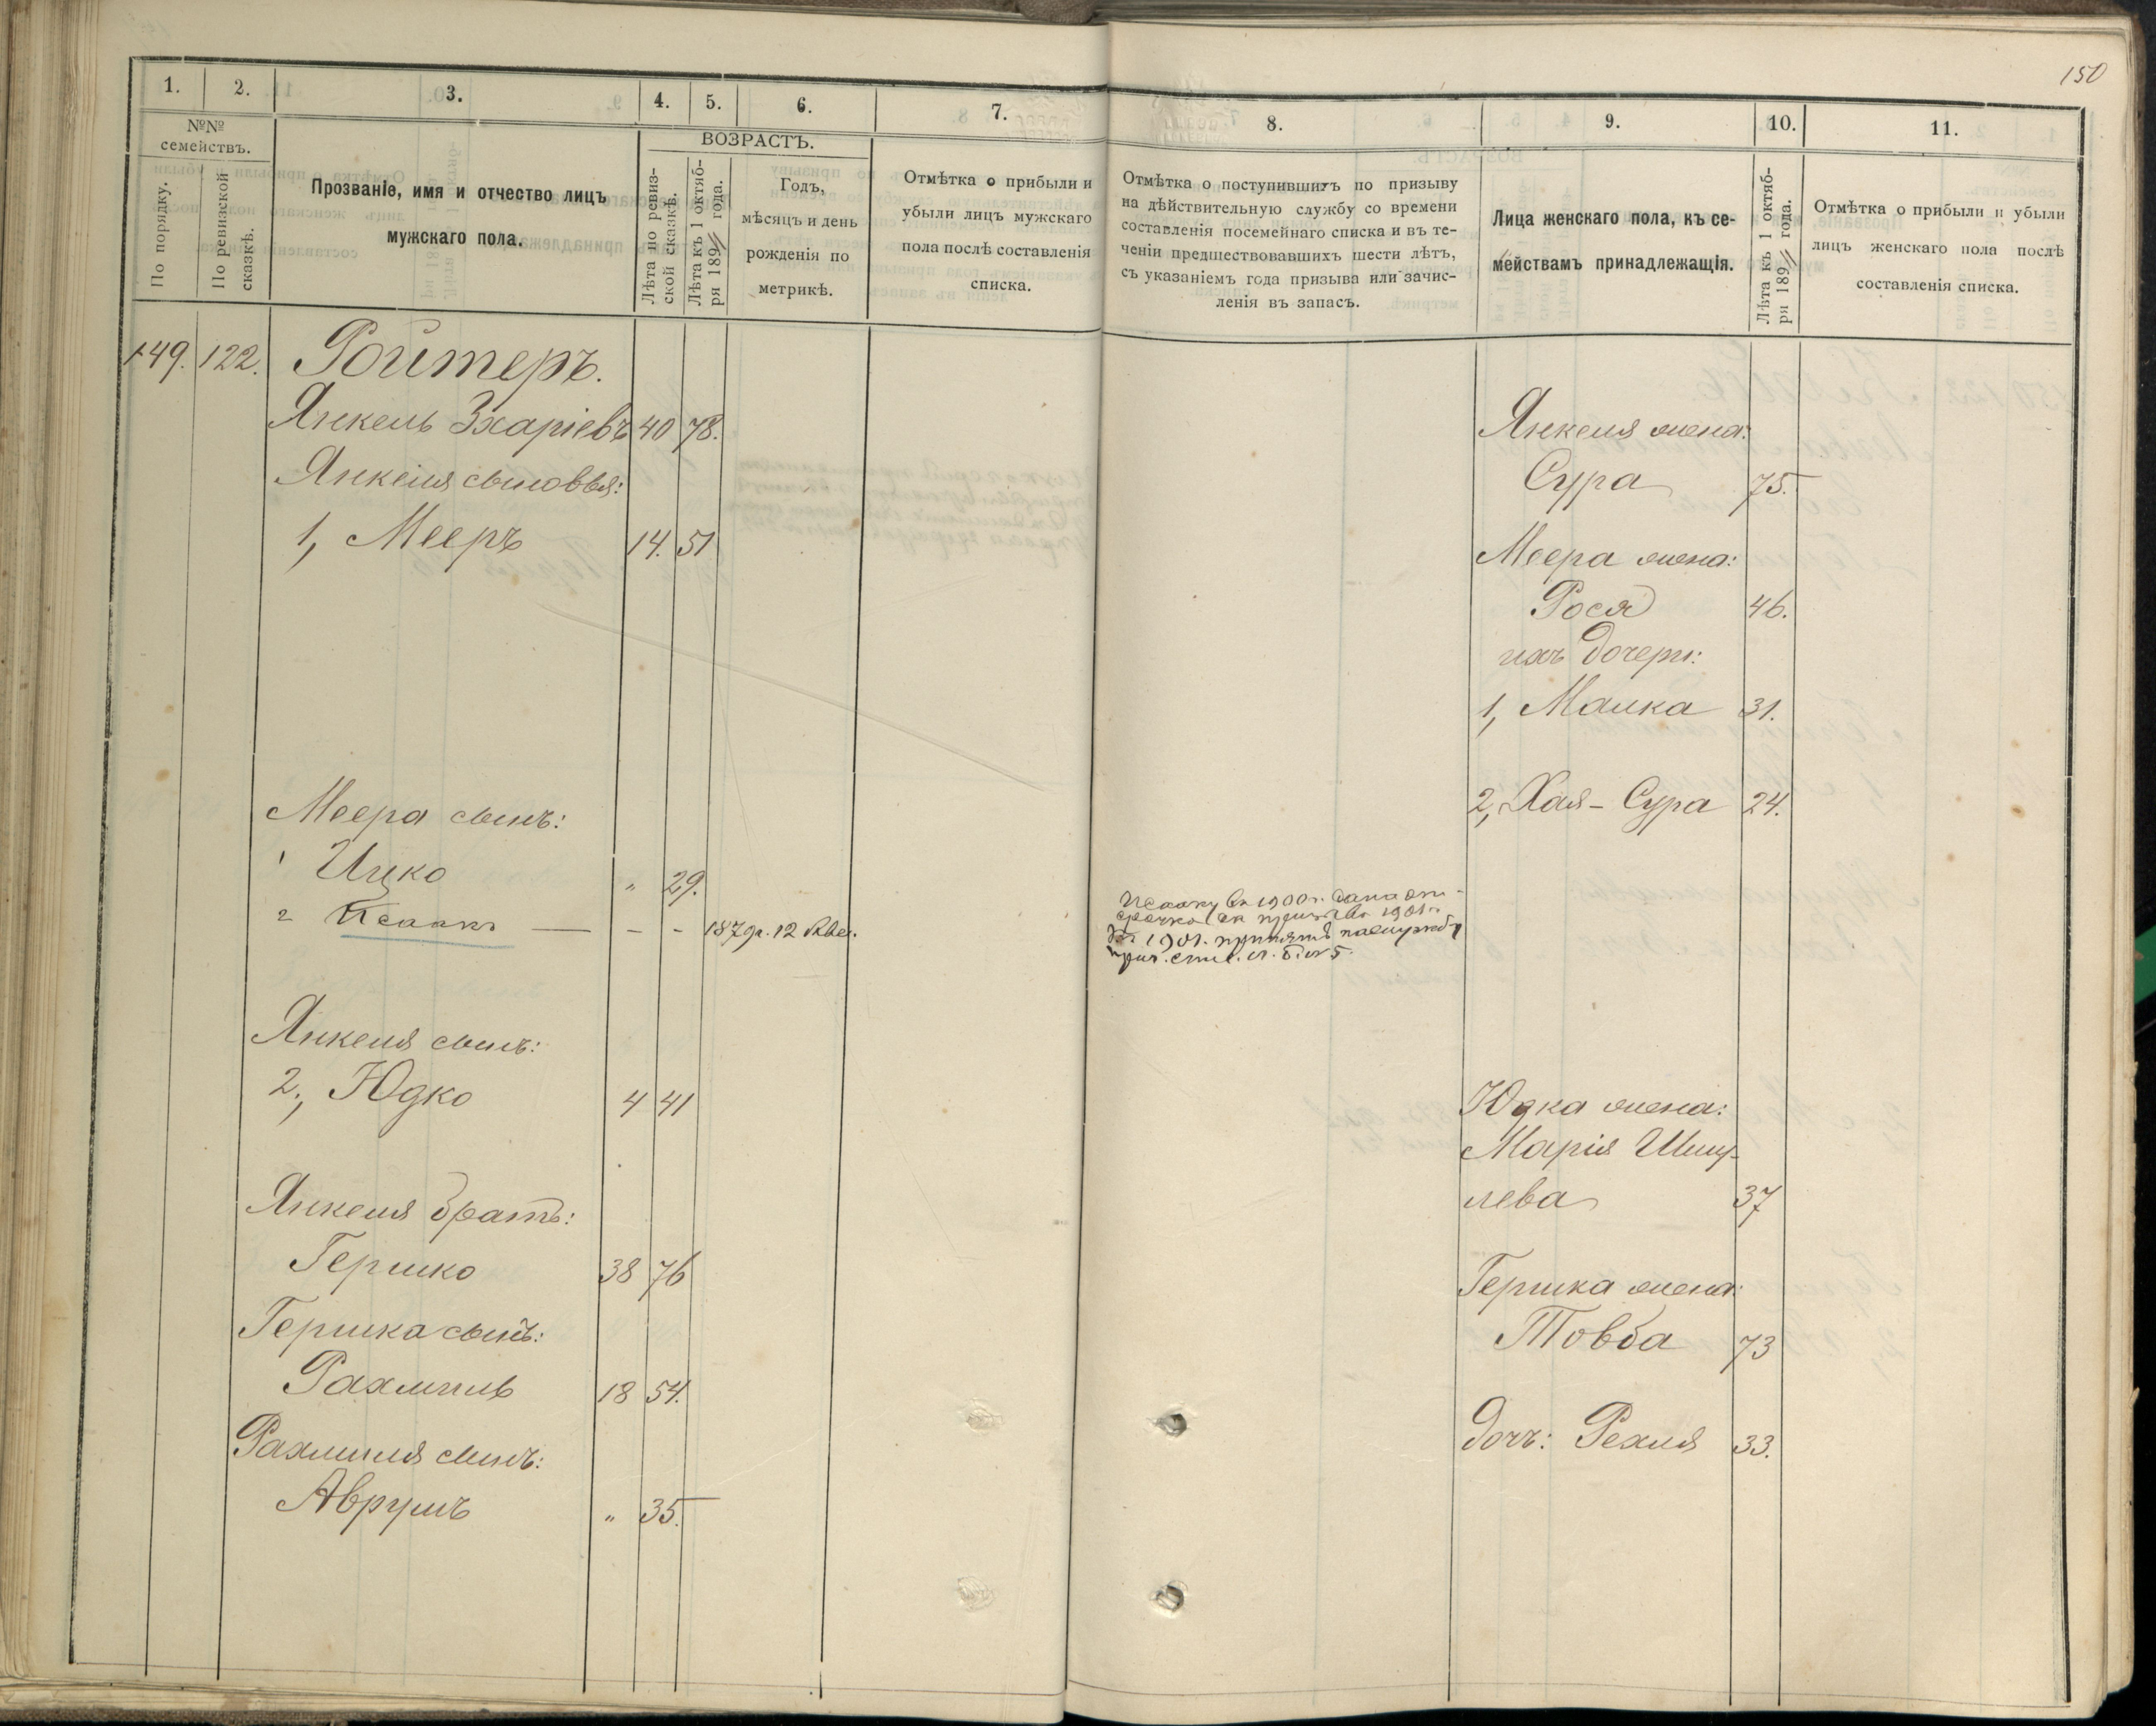 150
1. 2. 3. 4. 5. 6. 7.
№№ семействъ.
По порядку.
По ревизской сказкѣ.
Прозваніе, имя и отчество лицъ
мужскаго пола.
ВОЗРАСТЪ.
Лѣта по ревиз-
ской сказкѣ.
Лѣта къ 1 октяб-
ря 189 года.
Годъ,
мѣсяцъ и день
рожденія по
метрикѣ.
Отмѣтка о прибыли и
убыли лицъ мужскаго
пола послѣ составленія
списка.
149. 122. Ройтеръ.
Янкель Зхаріевъ 40 78.
Янкеля сыновья:
1, Мееръ 14. 51
Меера сынъ:
1 Ицко " 29.
2 Исаакъ — - - 1879г. 12 Авг.
Янкеля сынъ:
2, Юдко 4 41
Янкеля братъ:
Гершко 38 76
Гершка сынъ:
Рахмиль 18 54.
Рахмиля сынъ:
Аврумъ " 35.
8. 9. 10. 11.
Отмѣтка о поступившихъ по призыву
на дѣйствительную службу со времени
составленія посемейнаго списка и въ те-
ченіи предшествовавшихъ шести лѣтъ,
съ указаніемъ года призыва или зачис-
ленія въ запасъ.
Лица женскаго пола, къ се-
мействамъ принадлежащія.
Лѣта къ 1 октяб-
ря 189 года.
Отмѣтка о прибыли и убыли
лицъ женскаго пола послѣ
составленія списка.
Янкеля жена:
Сура 75.
Меера жена:
Рося 46.
ихъ дочери:
1, Малка 31.
2, Хая-Сура 24.
Исааку въ 1900 г. дана от-
срочка 1901 г.
Въ 1901. принятъ
Юдка жена:
Марія Шму-
лева 37
Гершка жена:
Товба 73
дочь: Рехля 33.